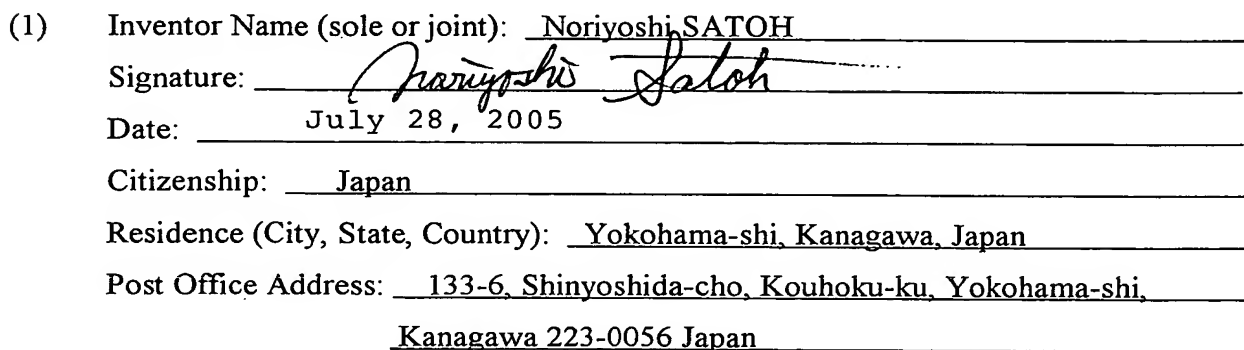 (1) Inventor Name (sole or joint): Noriyoshi SATOH
Signature: Noriyoshi Satoh
Date: July 28, 2005
Citizenship: Japan
Residence (City, State, Country): Yokohama-shi, Kanagawa, Japan
Post Office Address: 133-6, Shinyoshida-cho, Kouhoku-ku, Yokohama-shi,
Kanagawa 223-0056 Japan